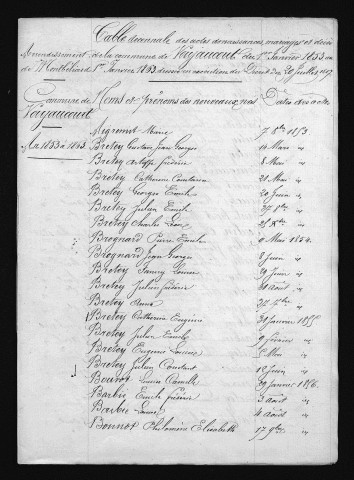 Table décennale des actes de naissances, mariages et décès
Arrondissement de la commune de Voujaucourt du 1er Janvier 1853 au
de Montbéliard 1er Janvier 1863 dressée en exécution du Décret du 20 Juillet 1807
Commune de Noms et prénoms des nouveaux nés Dates des actes
Voujaucourt
de 1853 à 1863.
Aigremot Marie 7 8bre 1853
Bretey Gustave Jean Georges 14 Mars
Bretey Adolphe Frédéric 8 Mai
Bretey Catherine Constance 28 Mai
Bretey Georges Emile 20 Juin
Bretey Julien Emile 27 8bre
Bretey Charles Léon 28 Xbre
Brognard Pierre Emile 9 Mai 1854
Brognard Jean Georges 8 Juin
Bretey Fanny Louise 29 Juin
Bretey Julien Frédéric 20 Août
Bretey Anna 27 7bre
Bretey Catherine Eugénie 30 Janvier 1855
Bretey Julien Emile 9 Février
Bretey Eugène Louise Mai
Bretey Julien Constant 18 Juin
Bouvot Louise Camille 29 Janvier 1856
Barbie Emile Frédéric 3 Août
Barbie Louise 4 Août
Bonnot Philomène Elisabeth 17 9bre